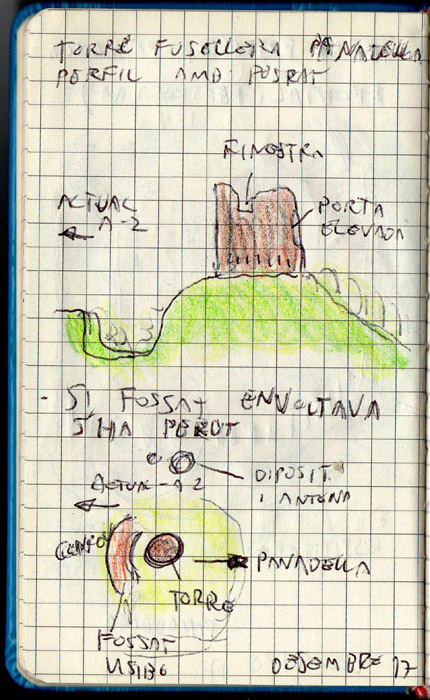 TORRE FUSELLERA PANADELLA
PERFIL AMB FOSSAT
FINESTRA
ACTUAL
A-2
PORTA
ELEVADA
- SI FOSSAT ENVOLTAVA
S'HA PERDUT
DIPOSIT
I ANTENA
ACTUAL A2
PANADELLA
TORRE
FOSSAT
VISIBLE
DESEMBRE 17